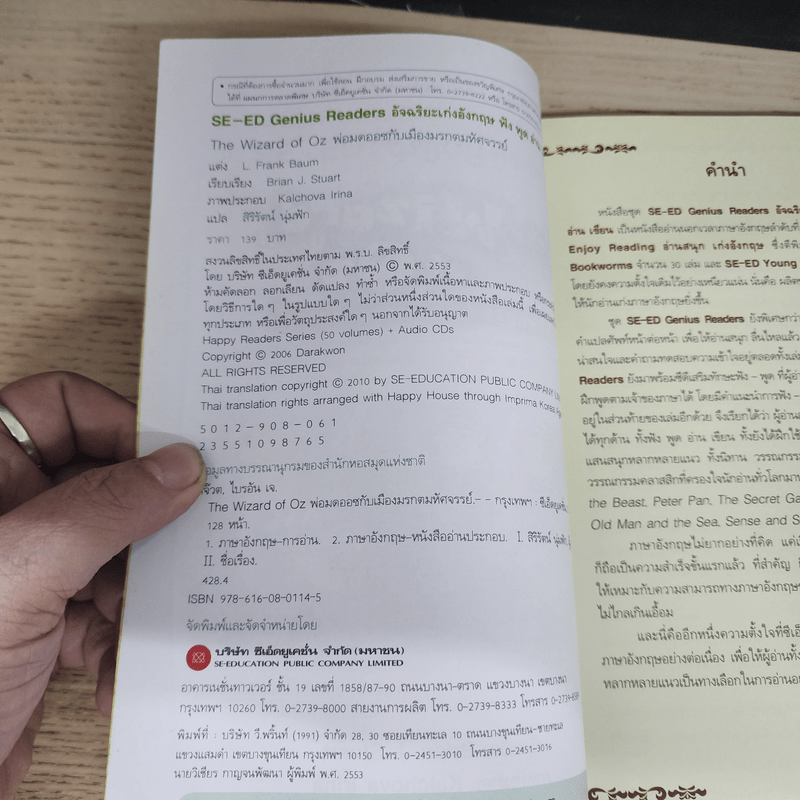 • กรณีที่ต้องการซื้อจำนวนมาก เพื่อใช้สอน ฝึกอบรม ส่งเสริมการขาย หรือเป็นของขวัญพิเศษ
ได้ที่ แผนกการตลาดพิเศษ บริษัท ซีเอ็ดยูเคชั่น จำกัด (มหาชน) โทร. 0-2739-8222 หรือ
SE-ED Genius Readers อัจฉริยะเก่งอังกฤษ ฟัง พูด
The Wizard of Oz พ่อมดออซกับเมืองมรกตมหัศจรรย์
แต่ง L. Frank Baum
เรียบเรียง Brian J. Stuart
ภาพประกอบ Kalchova Irina
แปล สิริรัตน์ นุ่มฟัก
ราคา 139 บาท
สงวนลิขสิทธิ์ในประเทศไทยตาม พ.ร.บ. ลิขสิทธิ์
โดย บริษัท ซีเอ็ดยูเคชั่น จำกัด (มหาชน) © พ.ศ. 2553
ห้ามคัดลอก ลอกเลียน ดัดแปลง ทำซ้ำ หรือจัดพิมพ์เนื้อหาและภาพประกอบ
โดยวิธีการใด ๆ ในรูปแบบใด ๆ ไม่ว่าส่วนหนึ่งส่วนใดของหนังสือเล่มนี้
ทุกประเภท หรือเพื่อวัตถุประสงค์ใด ๆ นอกจากได้รับอนุญาต
Happy Readers Series (50 volumes) + Audio CDs
Copyright © 2006 Darakwon
ALL RIGHTS RESERVED
Thai translation copyright © 2010 by SE-EDUCATION PUBLIC COMPANY
Thai translation rights arranged with Happy House through Imprima Korea
5 0 1 2 – 9 0 8 – 0 6 1
2 3 5 5 1 0 9 8 7 6 5
ข้อมูลทางบรรณานุกรมของสำนักหอสมุดแห่งชาติ
ไบรอัน เจ.
The Wizard of Oz พ่อมดออซกับเมืองมรกตมหัศจรรย์.- - กรุงเทพฯ :
128 หน้า.
1. ภาษาอังกฤษ–การอ่าน. 2. ภาษาอังกฤษ–หนังสืออ่านประกอบ. I. สิริรัตน์ นุ่มฟัก,
II. ชื่อเรื่อง.
428.4
ISBN 978-616-08-0114-5
จัดพิมพ์และจัดจำหน่ายโดย
บริษัท ซีเอ็ดยูเคชั่น จำกัด (มหาชน)
SE-EDUCATION PUBLIC COMPANY LIMITED
อาคารเนชั่นทาวเวอร์ ชั้น 19 เลขที่ 1858/87-90 ถนนบางนา-ตราด แขวงบางนา เขตบางนา
กรุงเทพฯ 10260 โทร. 0-2739-8000 สายงานการผลิต โทร. 0-2739-8333 โทรสาร
พิมพ์ที่ : บริษัท วี.พริ้นท์ (1991) จำกัด 28, 30 ซอยเทียนทะเล 10 ถนนบางขุนเทียน-ชายทะเล
แขวงแสมดำ เขตบางขุนเทียน กรุงเทพฯ 10150 โทร. 0-2451-3010 โทรสาร 0-2451-3016
นายวิเชียร กาญจนพัฒนา ผู้พิมพ์ พ.ศ. 2553
คำนำ
หนังสือชุด SE-ED Genius Readers
อ่าน เขียน เป็นหนังสืออ่านนอกเวลาภาษาอังกฤษลำดับที่
Enjoy Reading อ่านสนุก เก่งอังกฤษ
Bookworms จำนวน 30 เล่ม และ SE-ED Young
โดยยังคงความตั้งใจเดิมไว้อย่างเหนียวแน่น นั่นคือ
ให้นักอ่านเก่งภาษาอังกฤษยิ่งขึ้น
ชุด SE-ED Genius Readers ยังพิเศษกว่า
คำแปลศัพท์หน้าต่อหน้า เพื่อให้อ่านสนุก ลื่นไหลแล้ว
น่าสนใจและคำถามทดสอบความเข้าใจอยู่ตลอดทั้งเล่ม
Readers ยังมาพร้อมซีดีเสริมทักษะฟัง – พูด ที่ผู้อ่าน
ฝึกพูดตามเจ้าของภาษาได้ โดยมีคำแนะนำการฟัง –
อยู่ในส่วนท้ายของเล่มอีกด้วย จึงเรียกได้ว่า
ได้ทุกด้าน ทั้งฟัง พูด อ่าน เขียน ทั้งยังได้ฝึกใช้
แสนสนุกหลากหลายแนว ทั้งนิทาน วรรณกรรม
วรรณกรรมคลาสสิกที่ครองใจนักอ่านทั่วโลกมา
the Beast, Peter Pan, The Secret
Old Man and the Sea, Sense and
ภาษาอังกฤษไม่ยากอย่างที่คิด
ก็ถือเป็นความสำเร็จขั้นแรกแล้ว ที่สำคัญ
ให้เหมาะกับความสามารถทางภาษาอังกฤษ
ไม่ไกลเกินเอื้อม
และนี่คืออีกหนึ่งความตั้งใจที่
ภาษาอังกฤษอย่างต่อเนื่อง เพื่อให้ผู้อ่าน
หลากหลายแนวเป็นทางเลือกในการอ่าน